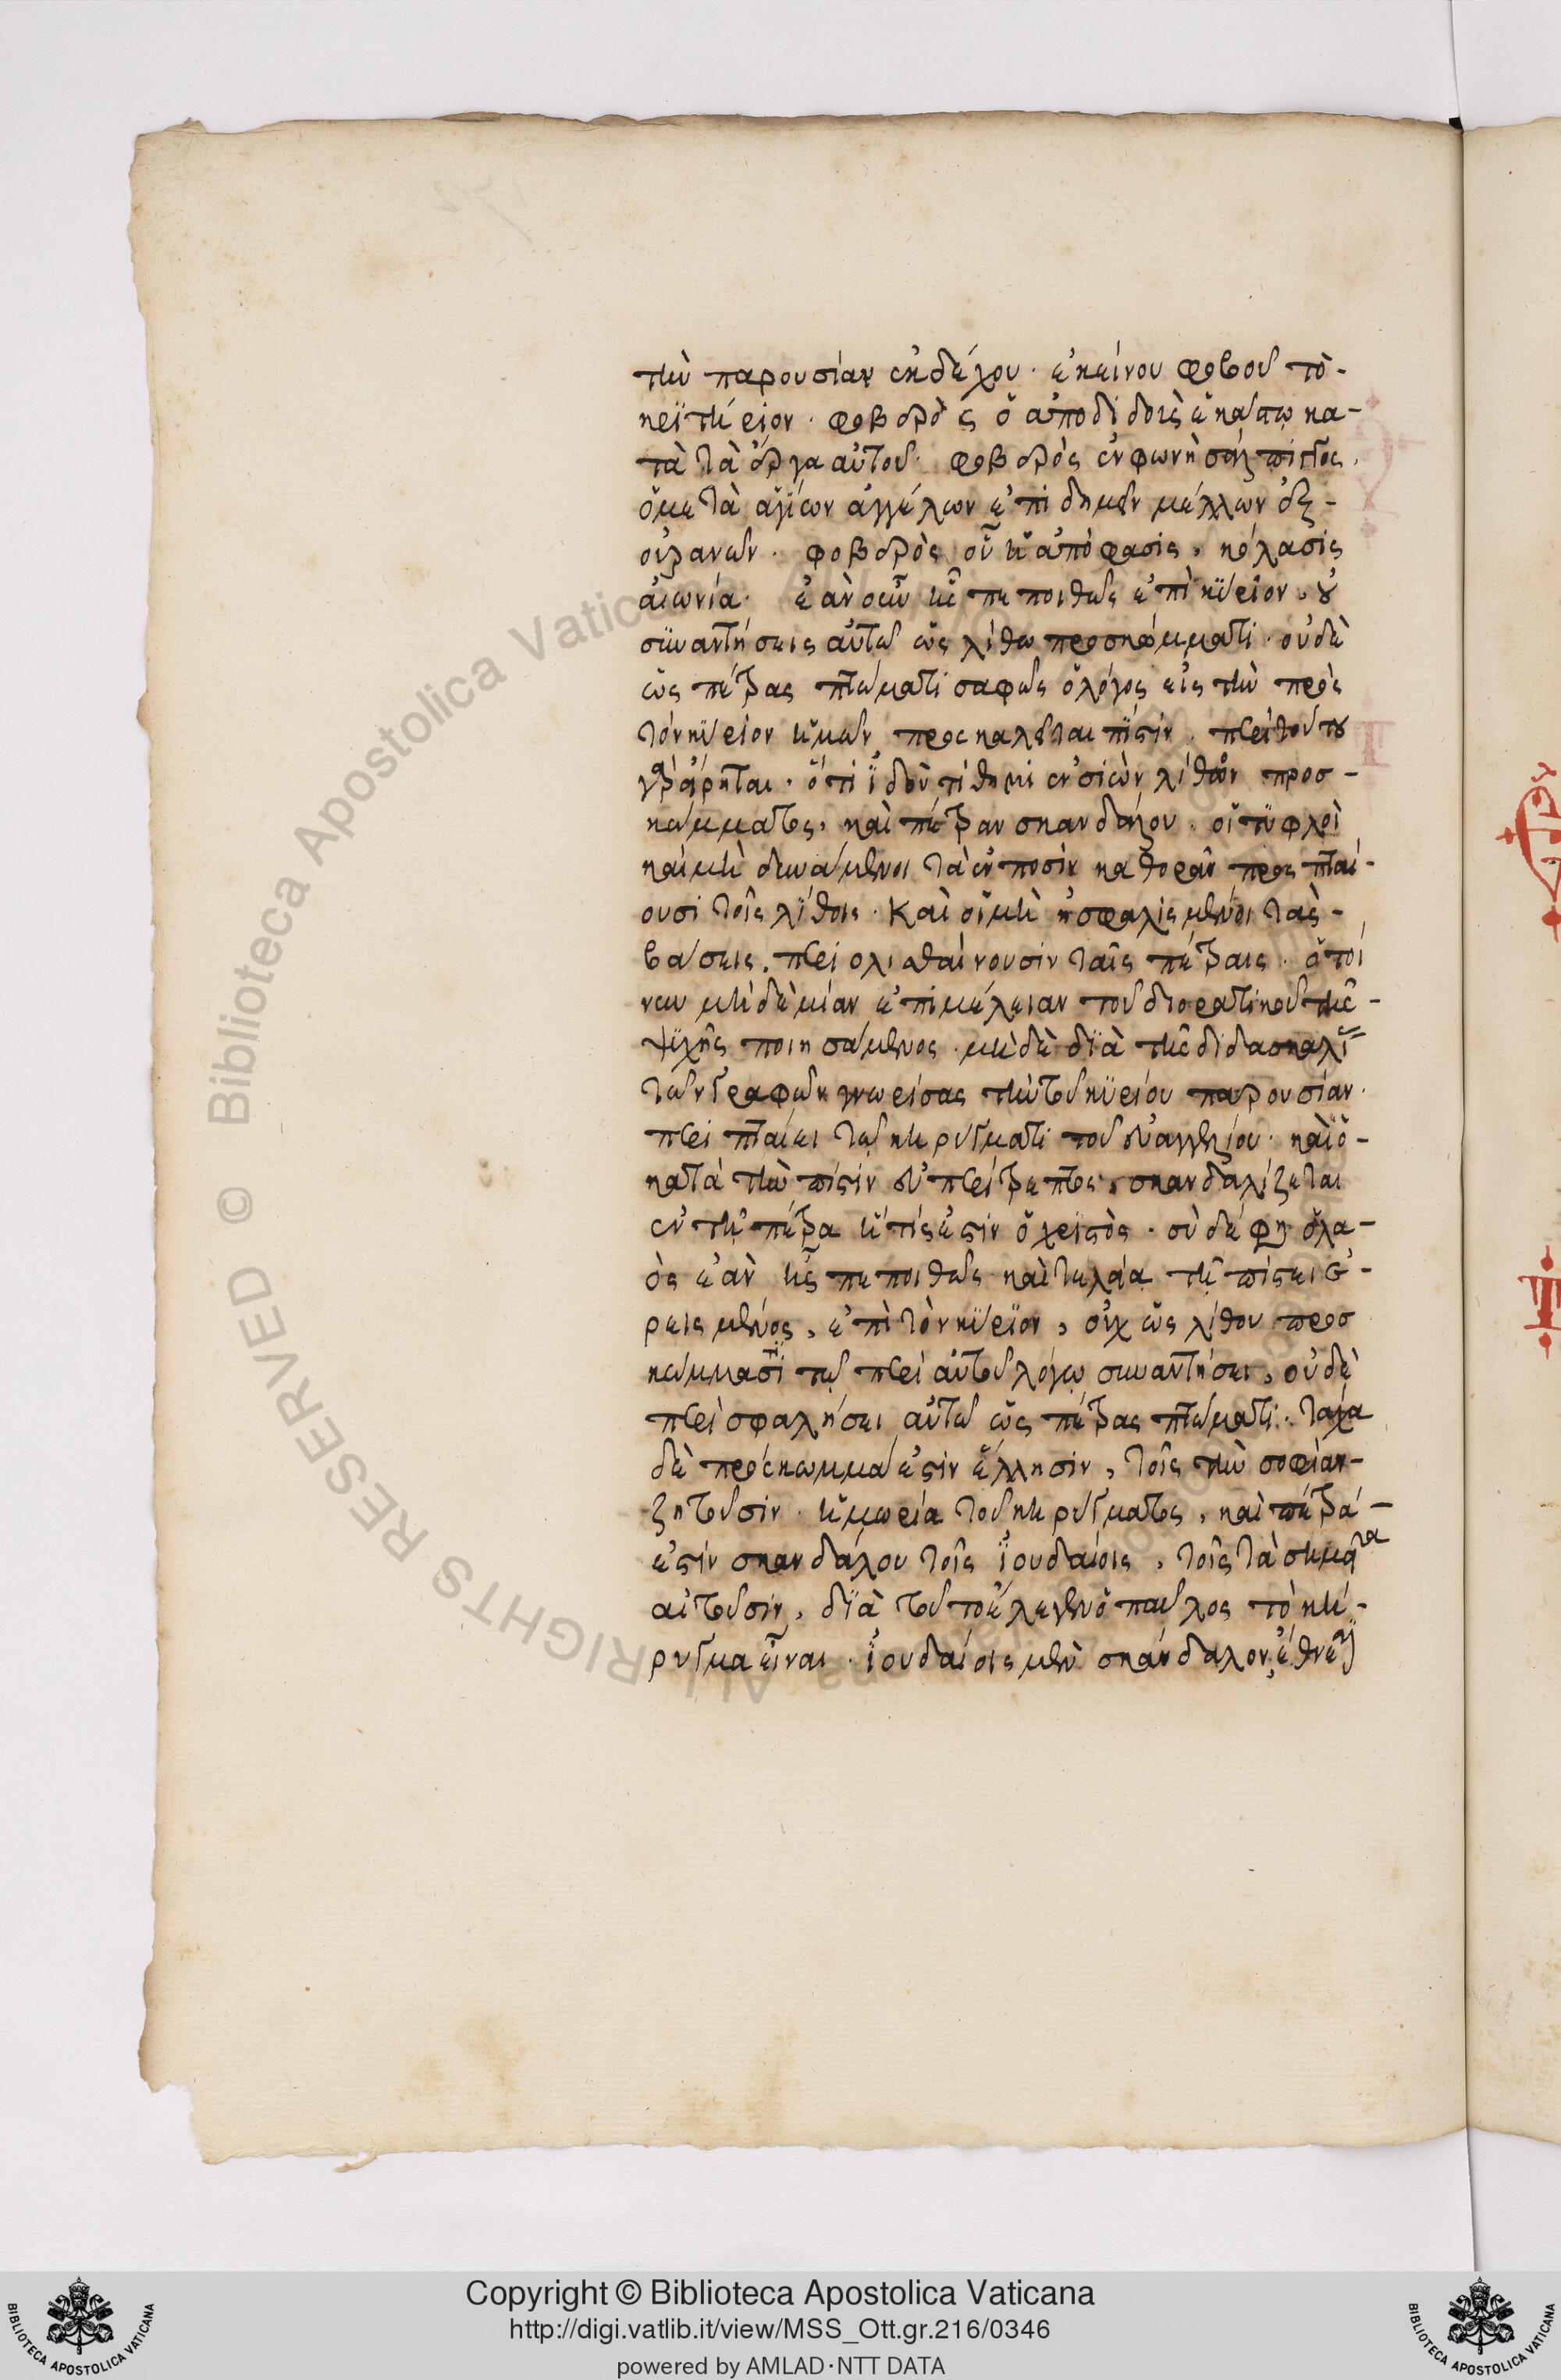 τὴν παρουσίαν ἐκδέχου· ἐκείνου φοβοῦ τὸ-
κριτήριον· φοβερὸς ὁ ἀποδιδοὺς ἑκάστω κα-
τὰ τὰ ἔργα αὐτοῦ· φοβερὸς ἐν φωνὴ σάλπιγγος,
ὁ μετὰ ἁγίων ἀγγέλων ἐπιδημεῖν μέλλων ἐξ-
οὐρανῶν· φοβερὸς οὗ ἡ ἀπόφασις, κόλασις
αἰωνία· ἐὰν οὖν ἦς πεποιθὼς ἐπὶ κύριον, οὐ
συναντήσεις αὐτῶ ὡς λίθω προσκόμματι· οὐδὲ
ὡς πέτρας πτώματι σαφῶς ὁ λόγος εἰς τὴν πρὸς
τὸν κύριον ἡμῶν προσκαλεῖται πίστιν· περὶ τούτου
γὰρ εἴρηται· ὅτι ἰδοὺ τίθημι ἐν σιὼν λίθον προσ-
κόμματος, καὶ πέτραν σκανδάλου· οἱ τυφλοὶ
καὶ μὴ δυνάμενοι τὰ ἐν ποσὶν καθορᾶν προσπταί-
ουσι τοῖς λίθοις· Καὶ οἱ μὴ ἠσφαλισμένοι τὰς-
βάσεις, περιολισθαίνουσιν ταῖς πέτραις· ὁ τοί
νυν μηδὲ μίαν ἐπιμέλειαν τοῦ διορατικοῦ τῆς-
ψυχῆς ποιησάμενος· μηδὲ διὰ τῆς διδασκαλί
τῶν γραφῶν γνωρίσας τὴν τοῦ κυρίου παρουσίαν·
περιπταίει τῶ κηρύγματι τοῦ εὐαγγελίου· καὶ ὁ-
κατὰ τὴν πίστιν εὐπερίτρεπτος, σκανδαλίζεται
ἐν τῇ πέτρα ἥτις ἐστὶν ὁ χριστὸς· οὐδέ φη ὁ λα-
ὸς ἐὰν ἦς πεποιθὼς καὶ τελεία τῆ πίστει ἐ-
ρεισμένος, ἐπὶ τὸν κύριον, οὐχ ὡς λίθου προσ
κόμματι τῶ περὶ αὐτοῦ λόγω συναντήσει, οὐδὲ
περισφαλήσει αὐτῶ ὡς πέτρας πτώματι· τάχα
δὲ πρόσκομμά ἐστιν ἕλλησιν, τοῖς τὴν σοφίαν-
ζητοῦσιν· ἡ μωρία τοῦ κηρύγματος, καὶ πέτρα-
ἐστὶν σκανδάλου τοῖς ἰουδαίοις, τοῖς τὰ σημεῖα
αἰτοῦσιν, διὰ τοῦτο ἔλεγεν ὁ παῦλος τὸ κή-
ρυγμα εἶναι· ἰουδαίοις μὲν σκάνδαλον, ἔθνεσι
Copyright © Biblioteca Apostolica Vaticana
http://digi.vatlib.it/view/MSS_Ott.gr.216/0346
powered by AMLAD·NTT DATA